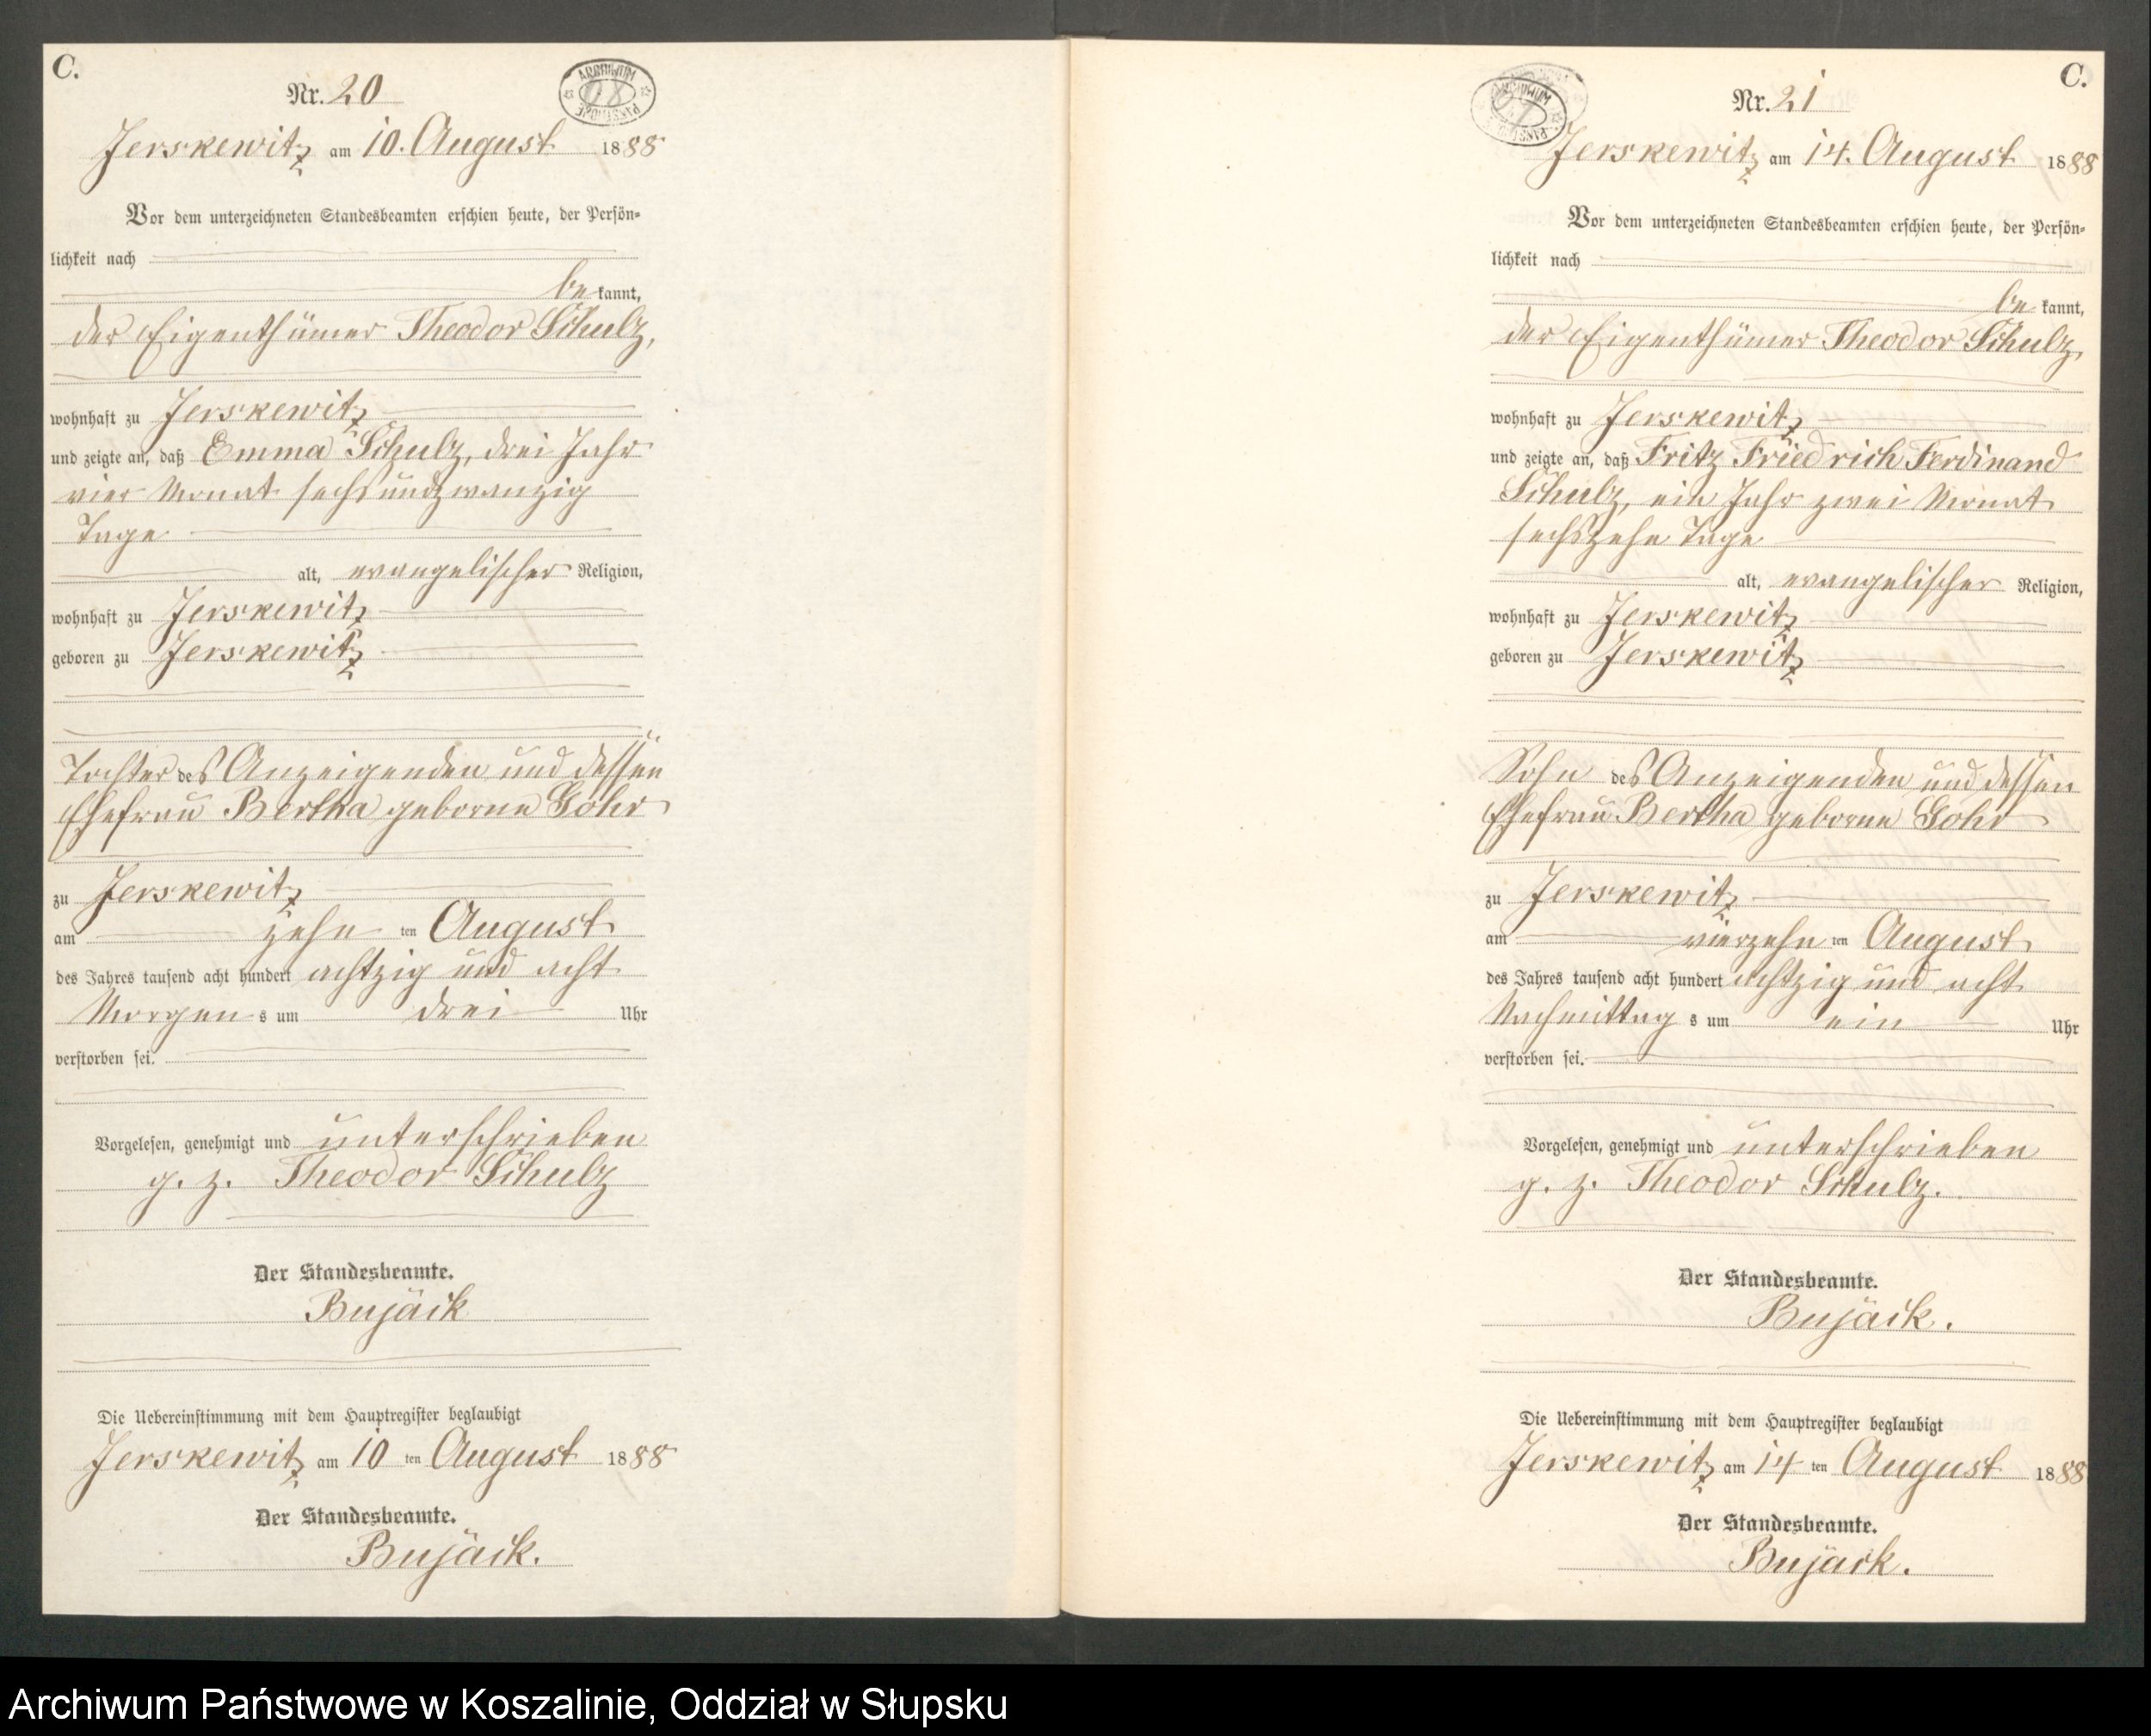 C.
Nr. 20
ARCHIWUM
Jerskewitz am 10. August 1888
Vor dem unterzeichneten Standesbeamten erschien heute, der Persön-
lichkeit nach
be kannt,
der Eigenthümer Theodor Schulz,
wohnhaft zu Jerskewitz
und zeigte an, daß Emma Schulz, drei Jahr
vier Monat sechsundzwanzig
Tage
alt, evangelischer Religion,
wohnhaft zu Jerskewitz
geboren zu Jerskewitz
Tochter des Anzeigenden und dessen
Ehefrau Bertha geborne Gohr
zu Jerskewitz
am zehn ten August
des Jahres tausend acht hundert achtzig und acht
Morgen s um drei Uhr
verstorben sei.
Vorgelesen, genehmigt und unterschrieben
g. z. Theodor Schulz
Der Standesbeamte.
Bujäck
Die Uebereinstimmung mit dem Hauptregister beglaubigt
Jerskewitz am 10 ten August 1888
Der Standesbeamte.
Bujäck.
C.
Nr. 21
Jerskewitz am 14. August 1888
Vor dem unterzeichneten Standesbeamten erschien heute, der Persön-
lichkeit nach
be kannt,
der Eigenthümer Theodor Schulz,
wohnhaft zu Jerskewitz
und zeigte an, daß Fritz Friedrich Ferdinand
Schulz, ein Jahr zwei Monat
sechszehn Tage
alt, evangelischer Religion,
wohnhaft zu Jerskewitz
geboren zu Jerskewitz
Sohn des Anzeigenden und dessen
Ehefrau Bertha geborne Gohr
zu Jerskewitz
am vierzehn ten August
des Jahres tausend acht hundert achtzig und acht
Nachmittag s um ein Uhr
verstorben sei.
Vorgelesen, genehmigt und unterschrieben
g. z. Theodor Schulz.
Der Standesbeamte.
Bujäck.
Die Uebereinstimmung mit dem Hauptregister beglaubigt
Jerskewitz am 14 ten August 1888
Der Standesbeamte.
Bujäck.
Archiwum Państwowe w Koszalinie, Oddział w Słupsku